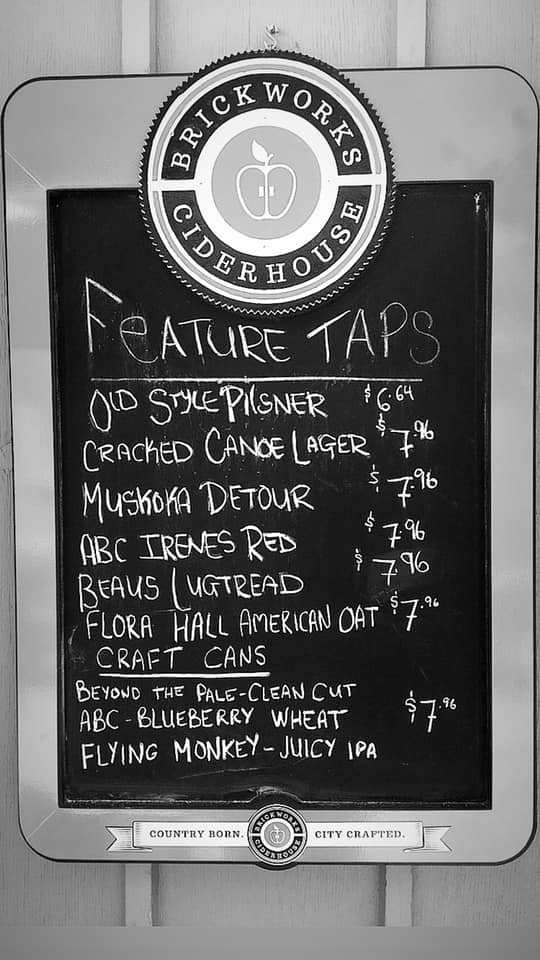 BRICKWORKS
CIDERHOUSE
FeATURE TAPS
OLD STYLE PILSNER $6.64
CRACKED CANOE LAGER $7.96
MUSKOKA DETOUR $7.96
ABC IRENES RED $7.96
BEAUS LUGTREAD $7.96
FLORA HALL AMERICAN OAT $7.96
CRAFT CANS
BEYOND THE PALE-CLEAN CUT
ABC-BLUEBERRY WHEAT $7.96
FLYING MONKEY-JUICY IPA
COUNTRY BORN. BRICKWORKS CIDERHOUSE CITY CRAFTED.